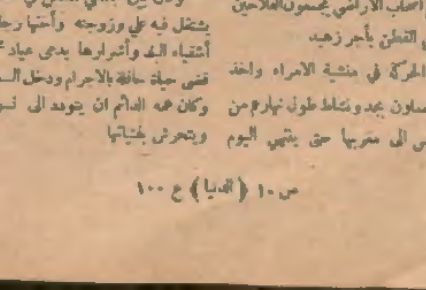 أصحاب الأراضي يجمعون الفلاحين
القطن بأجر زهيد
الحركة في منشية الامراء واخذ
يعملون بجد ونشاط طول نهارهم من
الى مغربها حتى ينتهي اليوم
يشتغل فيه علي وزوجته وأختها
أشقياء البلد وأشرارها يدعى عياد
قضى حياة حافلة بالاجرام ودخل
وكان همه الدائم ان يتودد الى
ويتحرش بفتياتها
ص ١٠ ( الدنيا ) ع ١٠٠